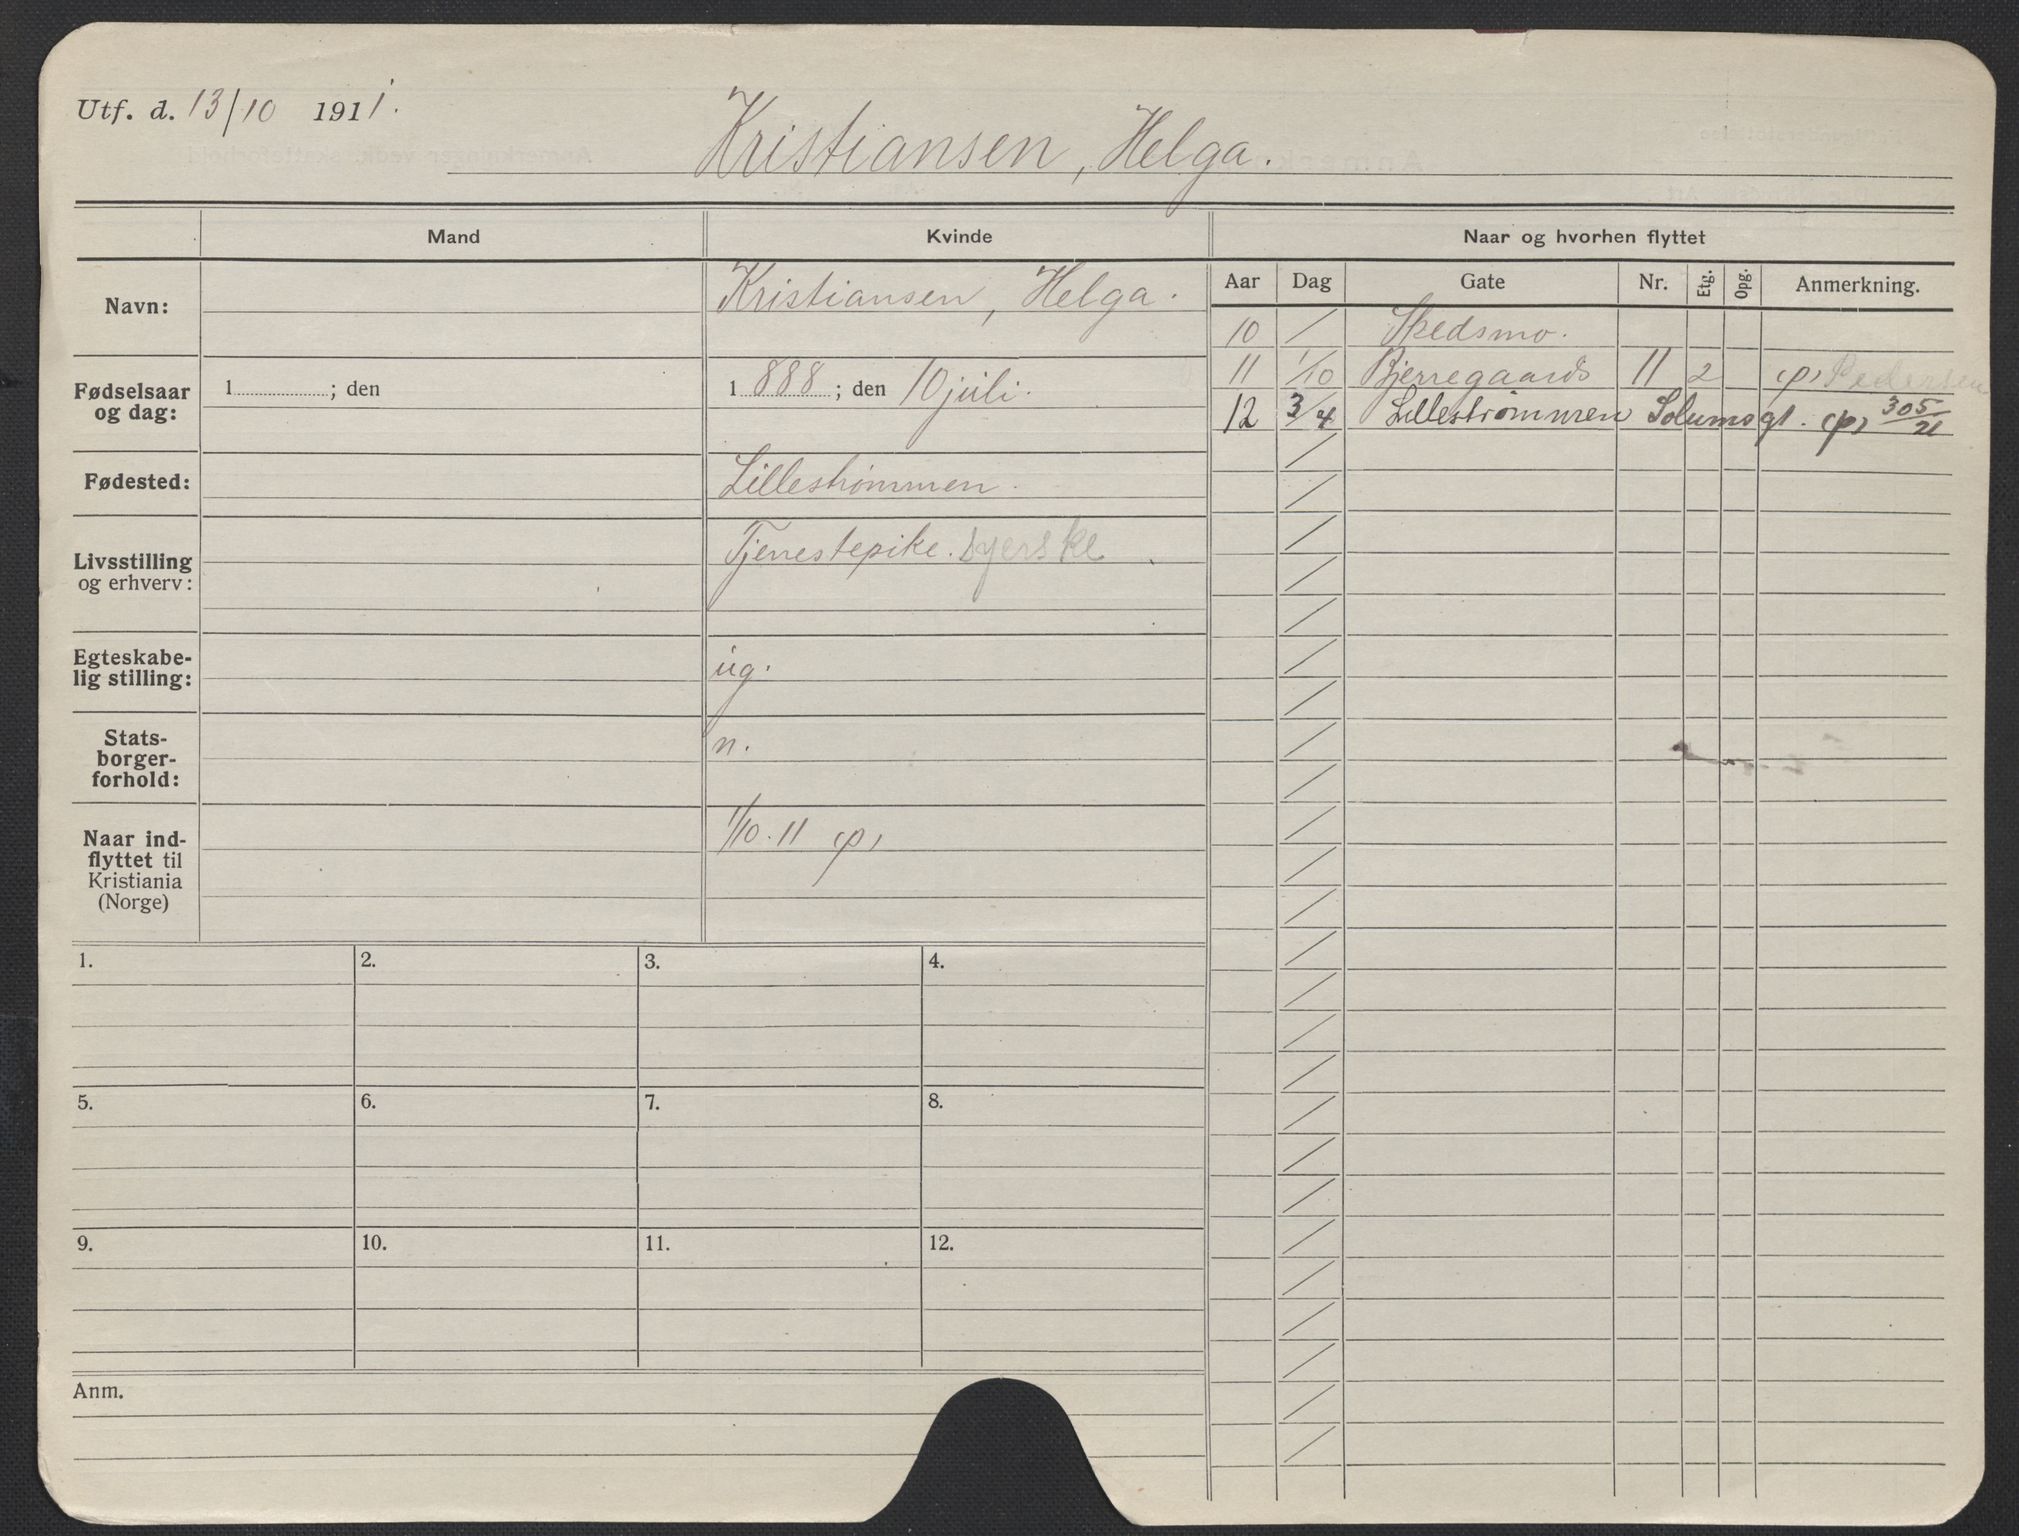 Utf. d. 13/10 1911.
Kristiansen, Helga.
Mand Kvinde Naar og hvorhen flyttet
Navn: Kristiansen, Helga.
Fødselsaar og dag: 1 ; den 1888 ; den 10 juli.
Fødested: Lillestrømmen.
Livsstilling og erhverv: Tjenestepike. Syerske
Egteskabe-
lig stilling: ug.
Stats-
borger-
forhold: n.
Naar ind-
flyttet til
Kristiania
(Norge) 1/10.11 (p)
Aar Dag Gate Nr. Etg. Opg. Anmerkning.
10 / Skedsmo.
11 1/10 Bjerregaards 11 2 (p) Pedersen
12 3/4 Lillestrømmen Solumsgt. (p) 305/21
1. 2. 3. 4.
5. 6. 7. 8.
9. 10. 11. 12.
Anm.